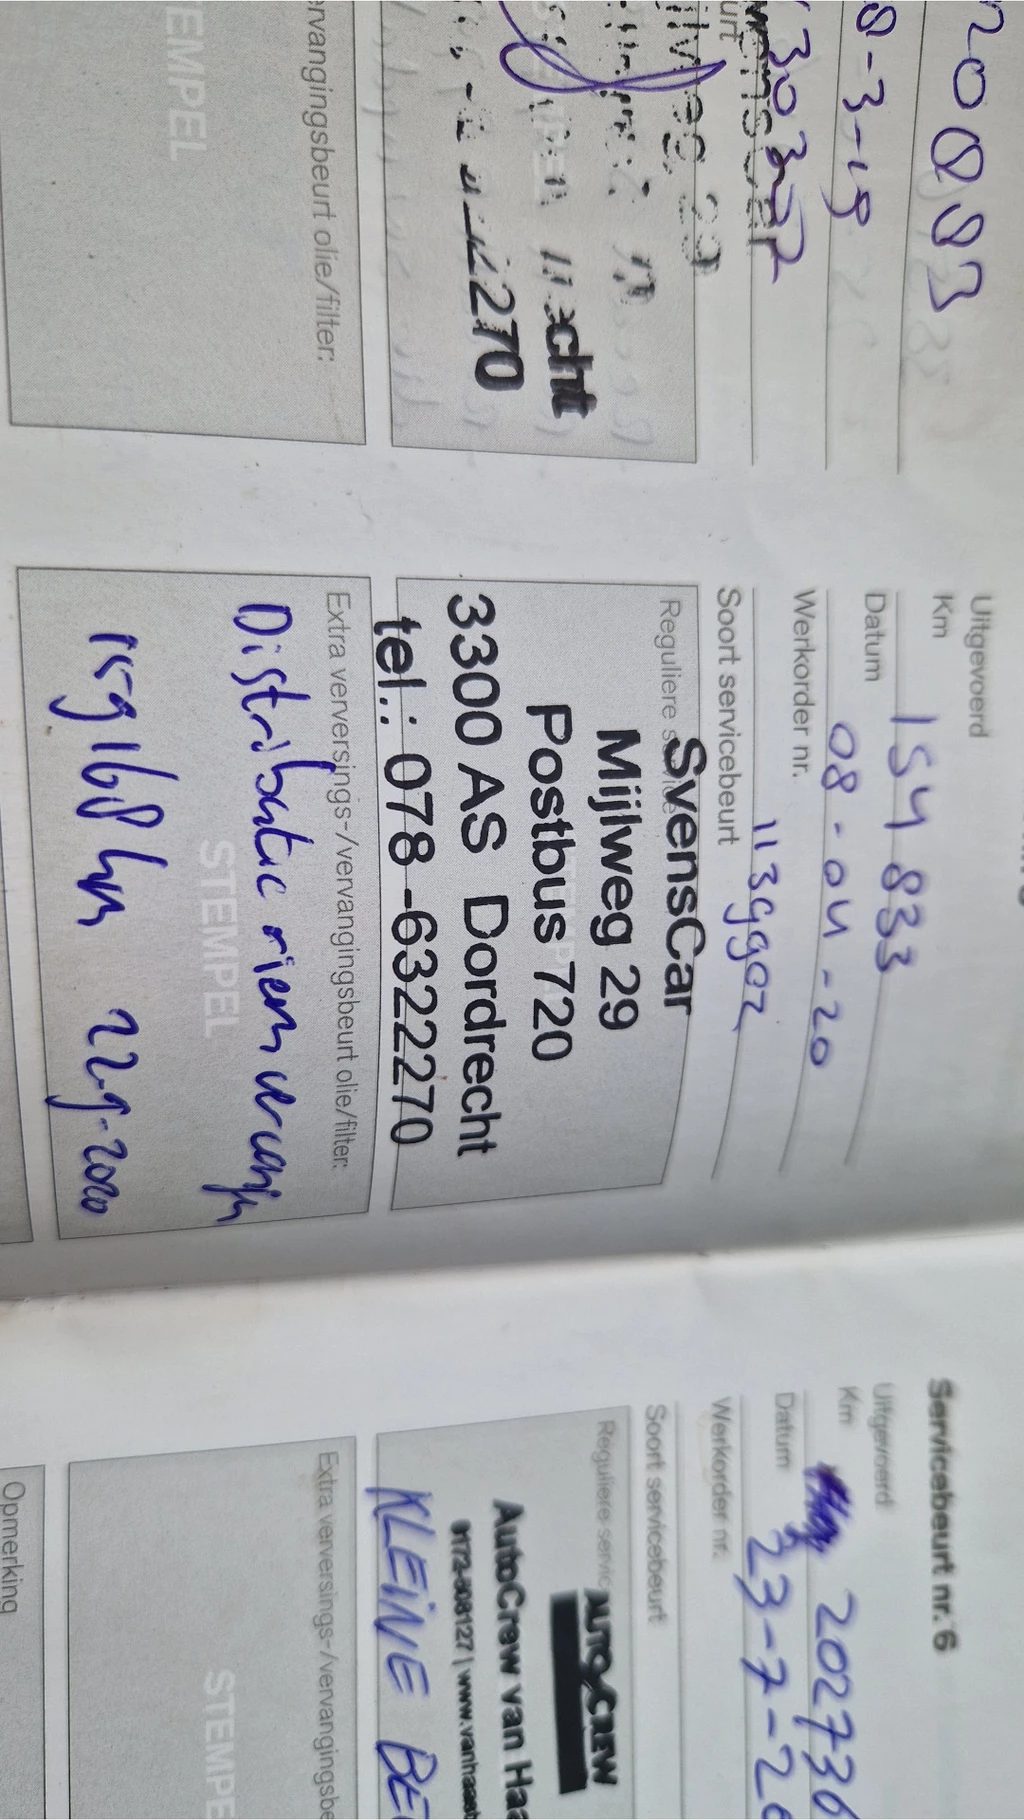 20893
8-3-19
30322
urt
29
cht
270
ervangingsbeurt olie/filter:
TEMPEL
Uitgevoerd
Km 154 833
Datum 08-04-20
Werkorder nr. 1139902
Soort servicebeurt
Reguliere
SvensCar
Mijlweg 29
Postbus 720
3300 AS Dordrecht
tel.: 078 -6322270
Extra verversings-/vervangingsbeurt olie/filter:
Distributie riem
STEMPEL
159168 km 22-9-2020
Servicebeurt nr. 6
Uitgevoerd
Km 202736
Datum 23-7-2
Werkorder nr.
Soort servicebeurt
Reguliere servic
AUTO CREW
AutoCrew van Haa
0172-508127 | www.vanhaast
KLEINE BE
Extra verversings-/vervangingsbe
STEMPE
Opmerking